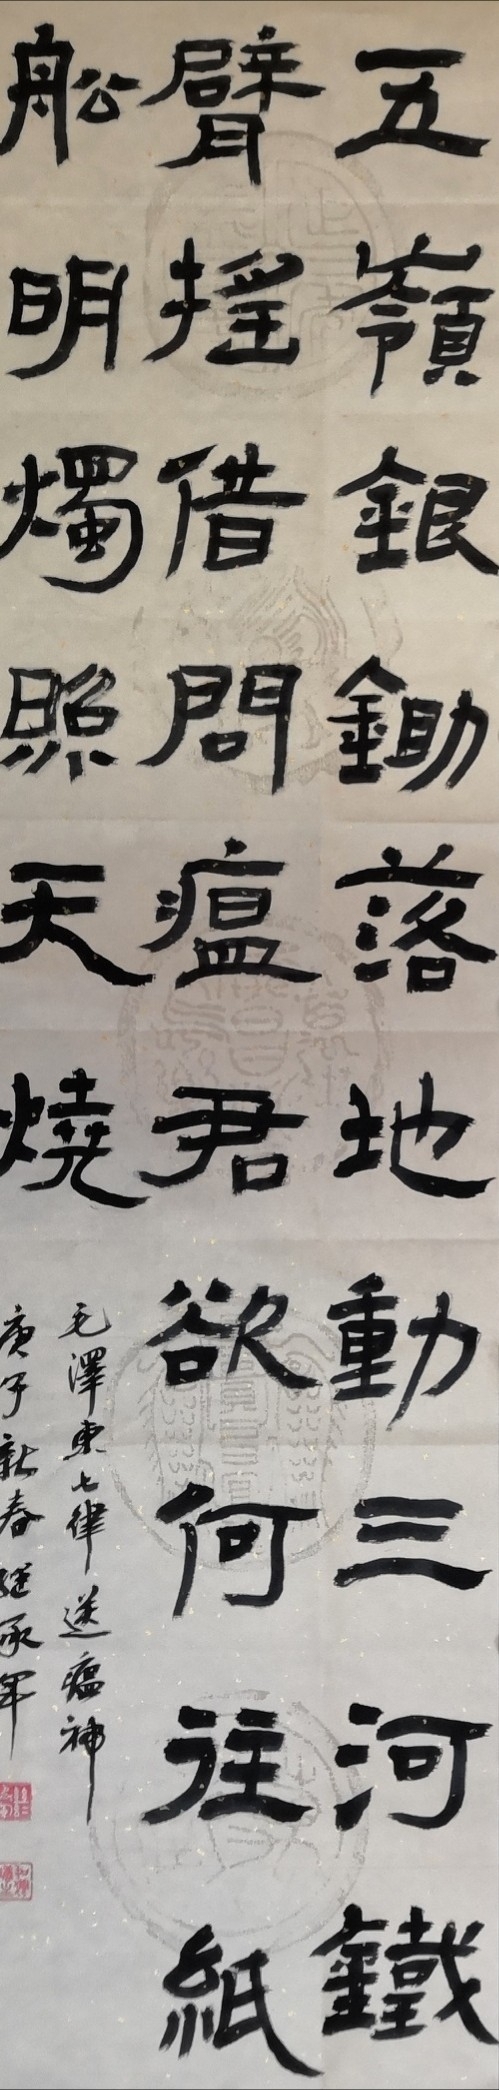 五嶺銀鋤落地動三河鐵
臂摇借問瘟君欲何往紙
船明燭照天燒
毛澤東七律送瘟神
庚子新春继承軍